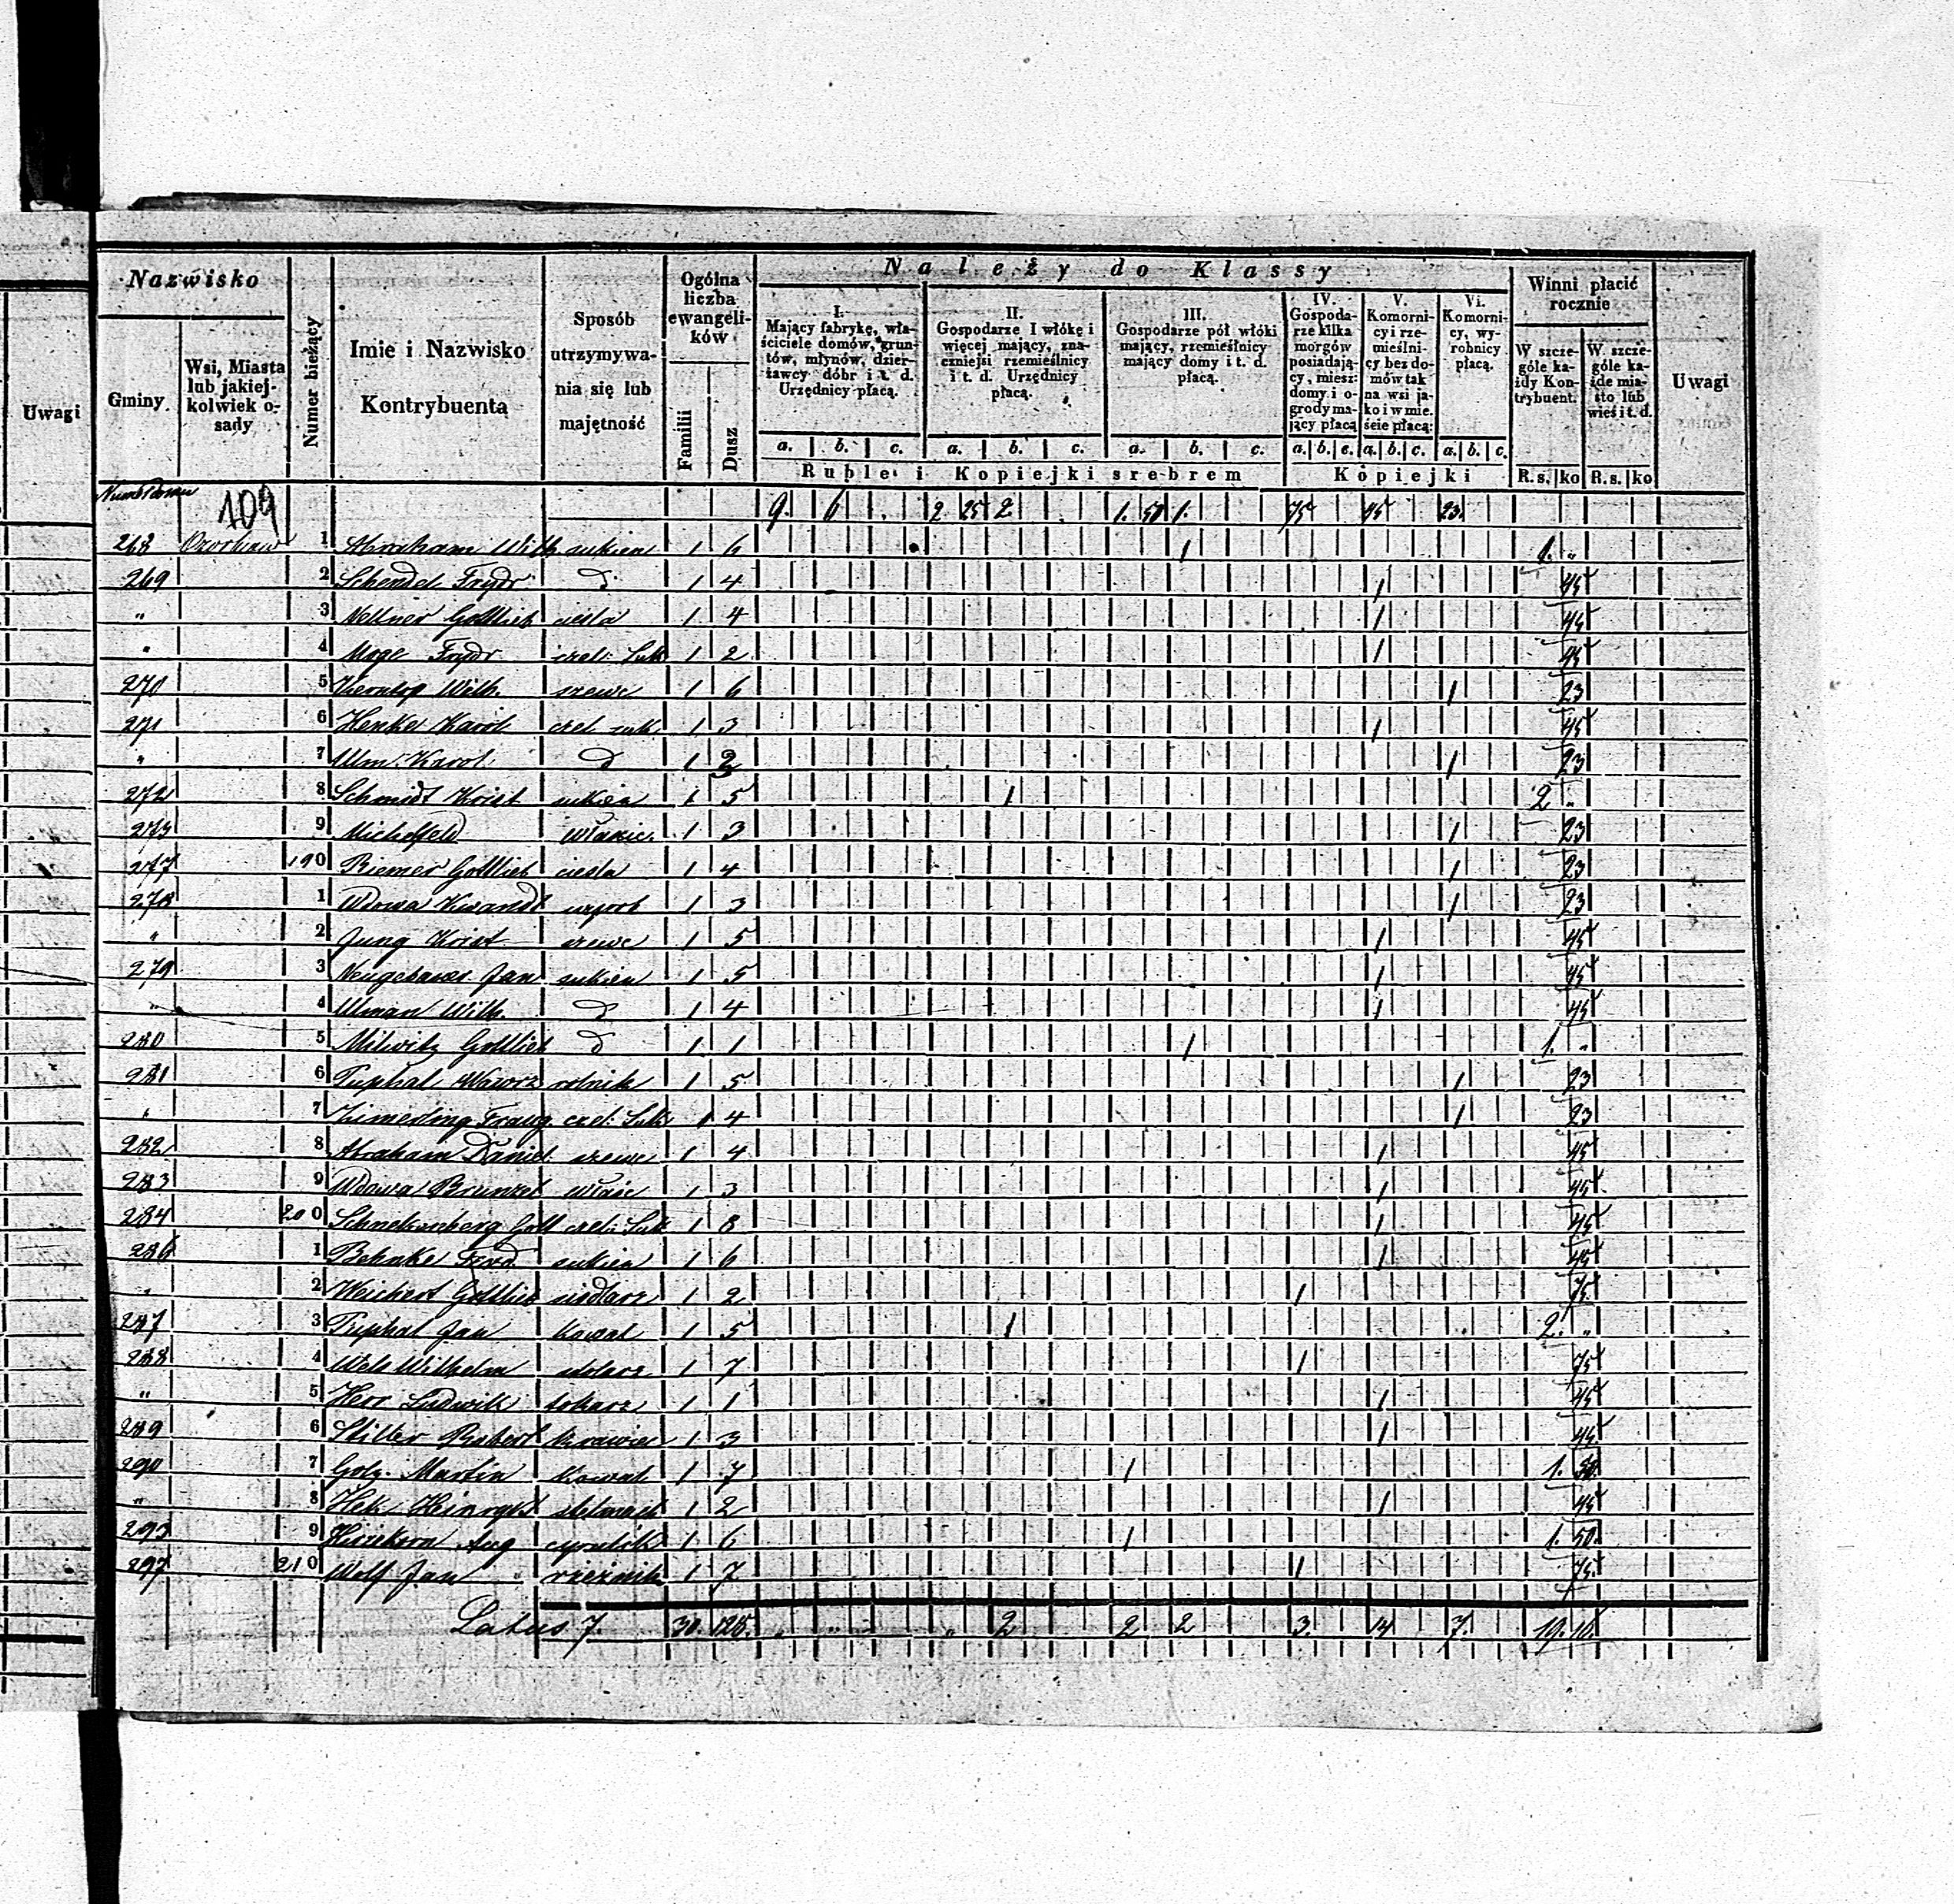 Uwagi
Nazwisko
Gminy
Wsi, Miasta lub jakiej-kolwiek o-sady
Numer bieżący
Imie i Nazwisko Kontrybuenta
Sposób utrzymywa-nia się lub majętność
Ogólna liczba ewangeli-ków
Familii
Dusz
Należy do Klassy
I. Mający fabrykę, wła-ściciele domów, grun-tów, młynów, dzier-żawcy dóbr i t. d. Urzędnicy płacą.
II. Gospodarze I włókę i więcej mający, zna-czniejsi rzemieślnicy i t. d. Urzędnicy płacą.
III. Gospodarze pół włóki mający, rzemieślnicy mający domy i t. d. płacą.
IV. Gospoda-rze kilka morgów posiadają-cy, miesz: domy i o-grody ma-jący płacą
V. Komorni-cy i rze-mieślni-cy bez do-mów tak na wsi ja-ko i w mie-ście płacą:
VI. Komorni-cy, wy-robnicy płacą.
Winni płacić rocznie
W szcze-góle ka-żdy Kon-trybuent.
W szcze-góle ka-żde mia-sto lub wieś i t. d.
Uwagi
a. b. c. a. b. c. a. b. c. a. b. c. a. b. c. a. b. c.
Ruble i Kopiejki srebrem
Kopiejki
R.s. ko R.s. ko
109
9. 6 . 2 25 2 . 1. 50 1. 75 45 23.
268 Ozorków 1 Abraham Wilh. sukien 1 6 1 1. "
269 2 Schendel Frydr d 1 4 1 45
" 3 Nellner Gottlieb cieśla 1 4 1 45
" 4 Moge Frydr czel: Suk 1 2 1 45
270 5 Wilh. szewc 1 6 1 23
271 6 Henke Karol czel suk 1 3 1 45
" 7 Ulm Karol d 1 3 1 23
272 8 Schmidt Krist sukien 1 5 1 2 "
273 9 Michelfeld 1 3 1 23
277 190 Riemer Gottlieb cieśla 1 4 1 23
278 1 Wdowa Kwandt wyrob 1 3 1 23
" 2 Jung Krist szewc 1 5 1 45
279 3 Neugebauer Jan sukien 1 5 1 45
" 4 Ulman Wilh. d 1 4 1 45
280 5 Milwitz Gottlieb d 1 1 1 1. "
281 6 Tuphal Wawrz rolnik 1 5 1 23
" 7 czel: Suk 1 4 1 23
282 8 Abraham Daniel szewc 1 4 1 45
283 9 Wdowa Brunzel 1 3 1 45
284 200 Gottl czel: Suk 1 8 1 45
286 1 Behnke Ferd sukien 1 6 1 45
" 2 Weichert Gottlieb siodlarz 1 2 1 75
287 3 Jan kowal 1 5 1 2. "
288 4 Wels Wilhelm stolarz 1 7 1 75
" 5 Herr Ludwik tokarz 1 1 1 45
289 6 Stiller Robert krawiec 1 3 1 45
290 7 Golz Martin kowal 1 7 1 1. 50
" 8 Hek stelmach 1 2 1 45
9 Aug cyrulik 1 6 1 1. 50.
297 210 Wolf Jan rzeźnik 1 7 1 75.
Latus 7. 30. 128. " " " 2 2 2 3. 14 7. 19. 16.